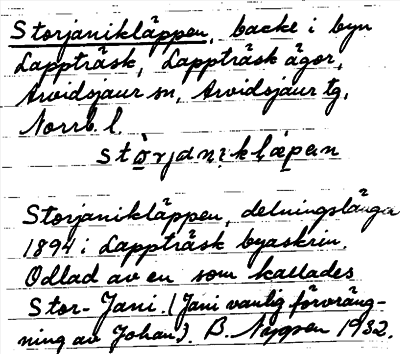 Storjanikläppen, backe i byn
Lappträsk, Lappträsk ägor,
Arvidsjaur sn, Arvidsjaur tg,
Norrb. l.
Storjanikläppen, delningslängd
1894 i Lappträsk byaskrin.
Odlad av en som kallades
Stor-Jani. (Jani vanlig förvräng-
ning av Johan). B. 1932.